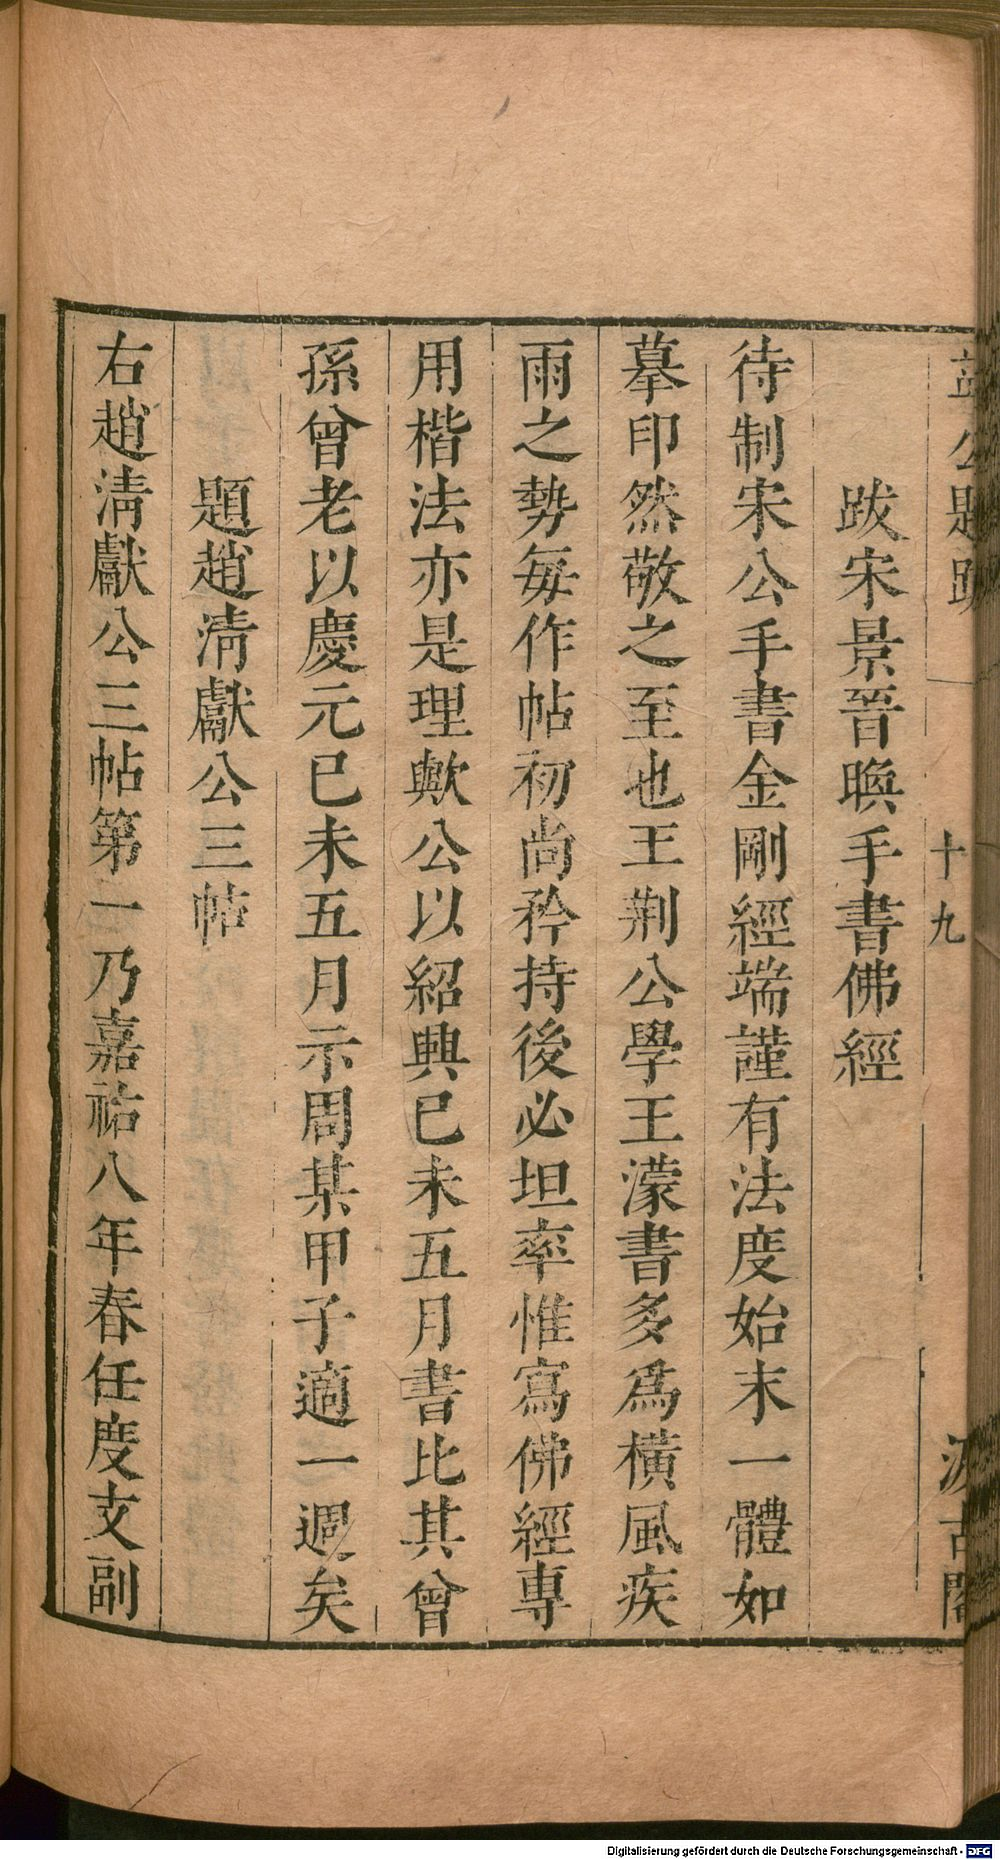 益公題跋
十九
汲古閣
跋宋景晉晚手書佛經
待制宋公手書金剛經端謹有法度始末一體如
摹印然敬之至也王荆公學王濛書多爲橫風疾
雨之勢每作帖初尚矜持後必坦率惟寫佛經專
用楷法亦是理歟公以紹興已未五月書比其曾
孫曾老以慶元已未五月示周某甲子適一週矣
題趙淸獻公三帖
右趙淸獻公三帖第一乃嘉祐八年春任度支副
Digitalisierung gefördert durch die Deutsche Forschungsgemeinschaft - DFG